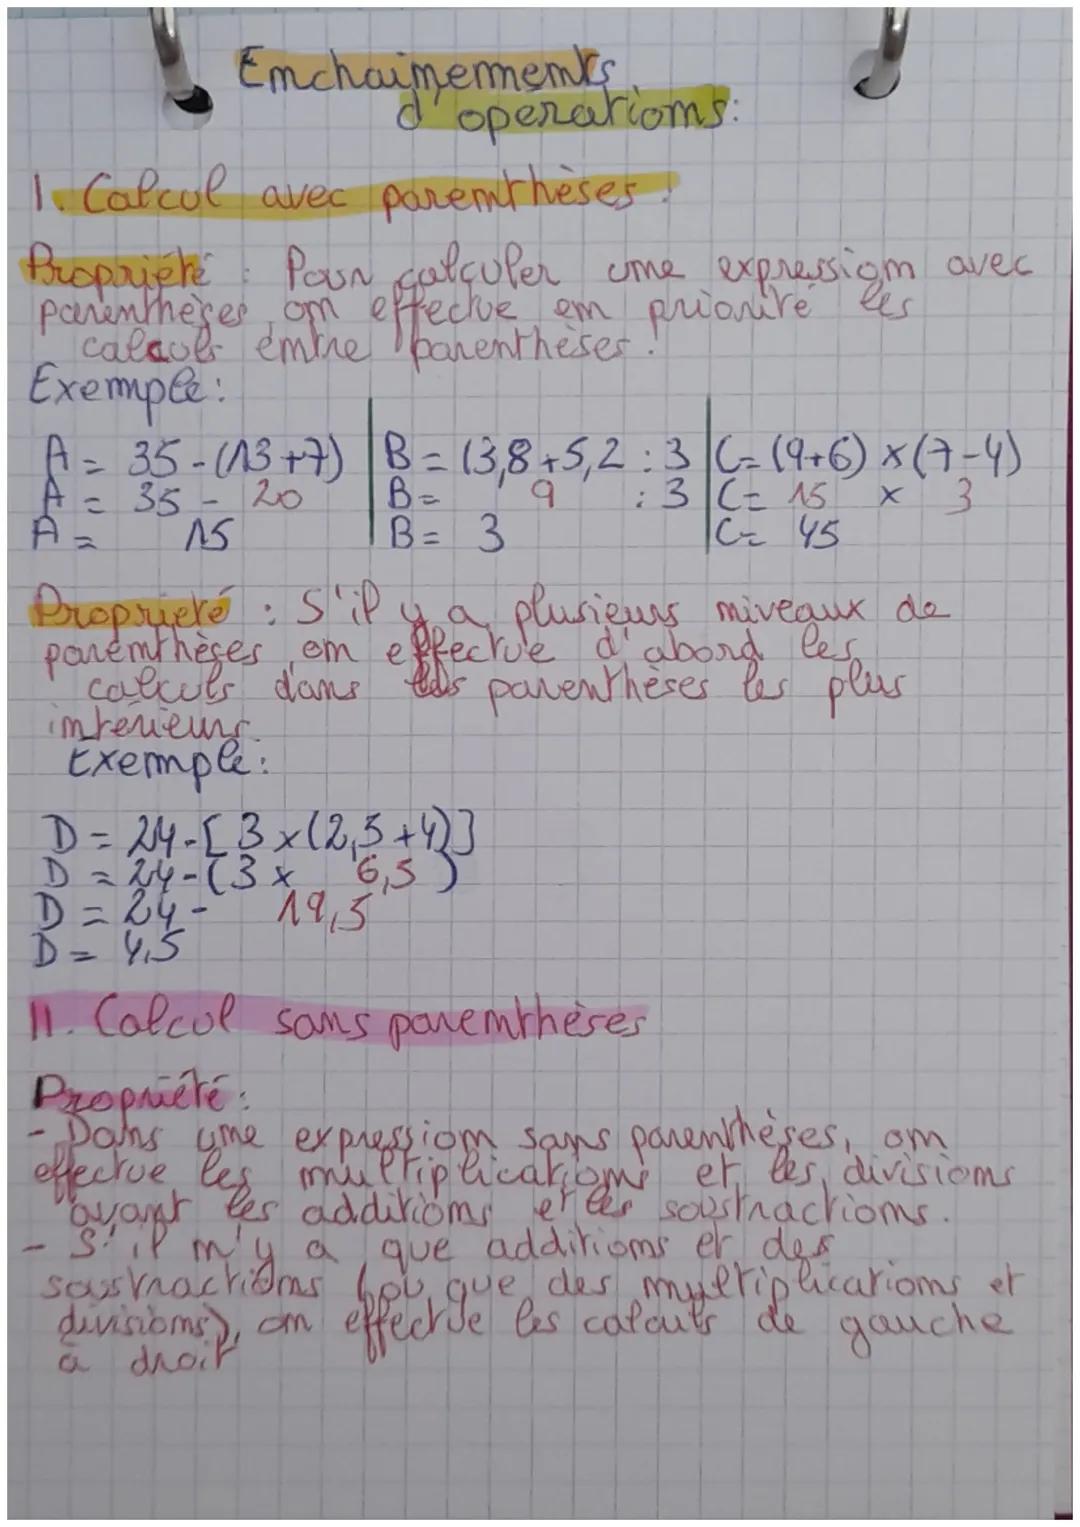 Enchainements
d'operations:
I. Calcul avec parenthèses:
Propriété : Pour calculer une expression avec
parenthèses, on effectue en priorité les
calculs entre parenthèses.
Exemple:
A = 35-(13+7) B = (3,8+5,2 : 3 C= (9+6) x (7-4)
A = 35 - 20 B = 9 : 3 C= 15 x 3
A = 15 B = 3 C= 45
Proprieté : S'il y a plusieurs niveaux de
parenthèses, on effectue d'abord les
calculs dans les parenthèses les plus
interieurs.
Exemple:
D = 24-[3x(2,5+4)]
D = 24-(3x 6,5)
D = 24- 19,5
D = 4,5
II. Calcul sans parenthèses
Propriété:
- Dans une expression sans parenthèses, on
effectue les multiplications et les divisions
avant les additions et les soustractions.
- S'il n'y a que additions et des
soustractions (ou que des multiplications et
divisions), on effectue les calculs de gauche
à droit